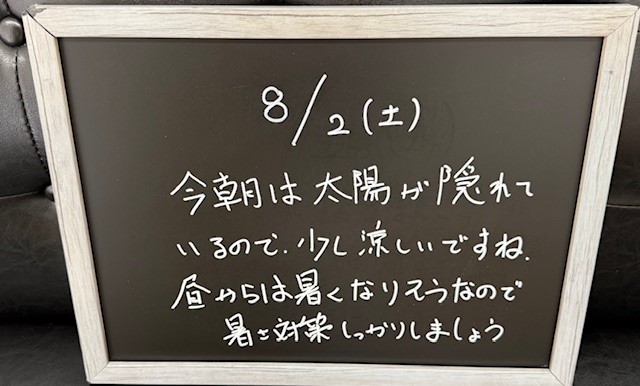 8/2(土)
今朝は太陽が隠れて
いるので、少し涼しいですね。
昼からは暑くなりそうなので
暑さ対策しっかりしましょう